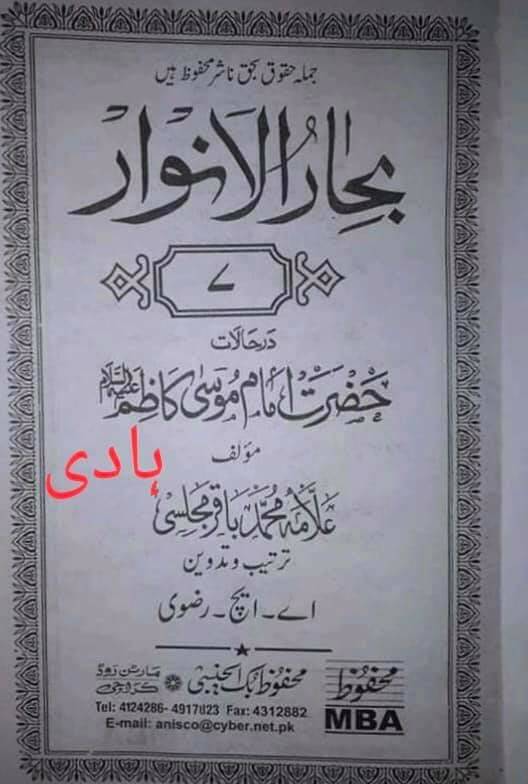 جملہ حقوق بحق ناشر محفوظ ہیں
بحارُ الانوار
۷
در حالات
حضرت امام موسیٰ کاظم علیہ السلام
مؤلف
ہادی
علّامہ محمد باقر مجلسی
ترتیب و تدوین
اے۔ ایچ۔ رضوی
محفوظ
MBA
محفوظ بک ایجنسی
مارٹن روڈ
کراچی
Tel: 4124286- 4917823 Fax: 4312882
E-mail: anisco@cyber.net.pk